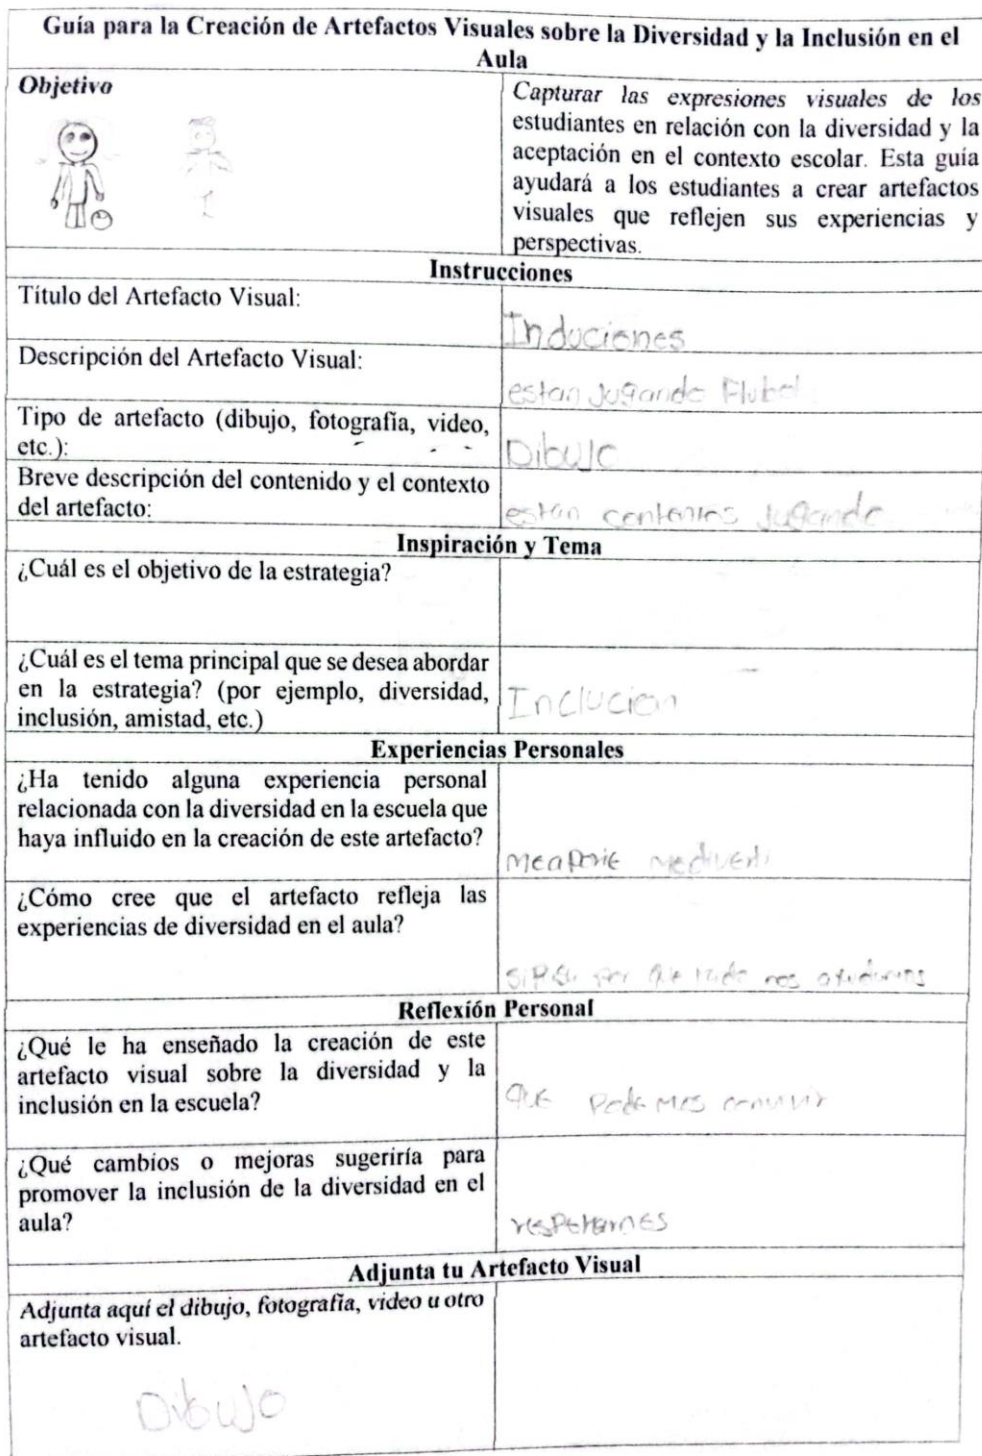 Guía para la Creación de Artefactos Visuales sobre la Diversidad y la Inclusión en el
Aula
Objetivo
Capturar las expresiones visuales de los
estudiantes en relación con la diversidad y la
aceptación en el contexto escolar. Esta guía
ayudará a los estudiantes a crear artefactos
visuales que reflejen sus experiencias y
perspectivas.
Instrucciones
Título del Artefacto Visual:
Induciones
Descripción del Artefacto Visual:
estan Jugando
Tipo de artefacto (dibujo, fotografía, video,
etc.):
Dibujo
Breve descripción del contenido y el contexto
del artefacto:
están contentos Jugando
Inspiración y Tema
¿Cuál es el objetivo de la estrategia?
¿Cuál es el tema principal que se desea abordar
en la estrategia? (por ejemplo, diversidad,
inclusión, amistad, etc.)
Inclucion
Experiencias Personales
¿Ha tenido alguna experiencia personal
relacionada con la diversidad en la escuela que
haya influido en la creación de este artefacto?
mediverti
¿Cómo cree que el artefacto refleja las
experiencias de diversidad en el aula?
por que nos
Reflexión Personal
¿Qué le ha enseñado la creación de este
artefacto visual sobre la diversidad y la
inclusión en la escuela?
que Podemos convivir
¿Qué cambios o mejoras sugeriría para
promover la inclusión de la diversidad en el
aula?
respetarnos
Adjunta tu Artefacto Visual
Adjunta aquí el dibujo, fotografía, video u otro
artefacto visual.
Dibujo